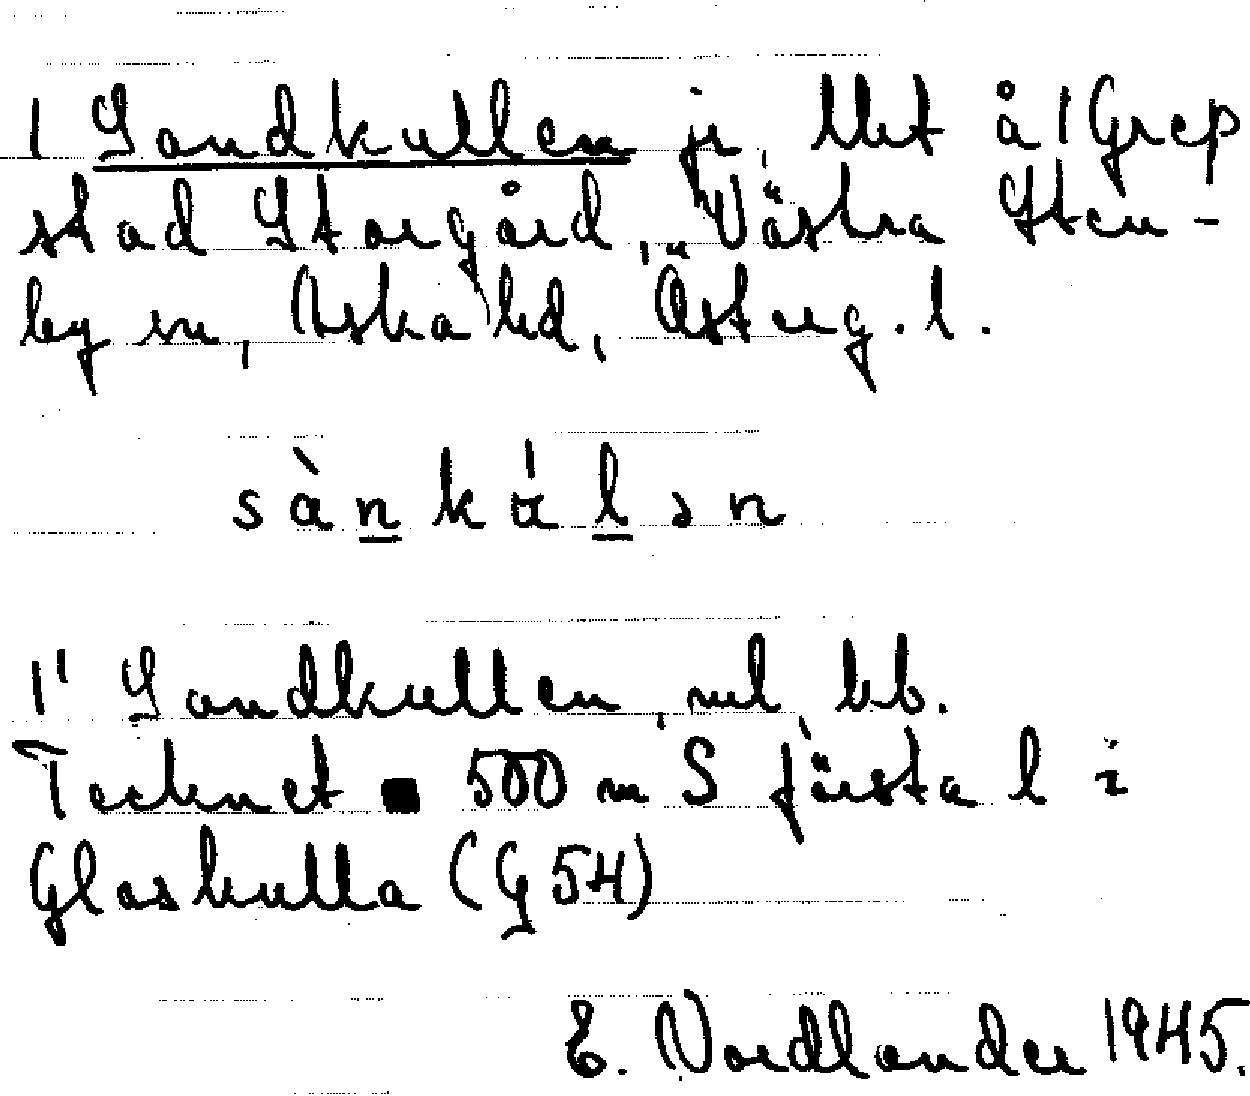 1 Sandkullen, ju, lht å 1 Grep
stad Storgård, Västra Sten-
by sn, Aska hd, Österg. l.
sànkálən
1' Sandkullen, ml, bb.
Tecknet ■ 500 m S första l i
Glaskulla (G 54)
E. Nordlander 1945.